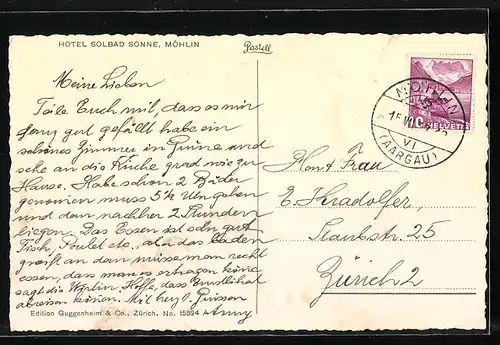 HOTEL SOLBAD SONNE, MÖHLIN
Pastell
Meine Lieben
Teile Euch mit, dass es mir
ganz gut gefällt habe ein
schönes Zimmer im und
sehe an die Kirche grad wie zu
Hause. Habe schon 2 Bäder
genommen muss 5¼ Uhr gehen
und dan nachher 2 Stunden
liegen. Das Essen ist sehr gut
Fisch, Poulet etc. das baden
greift an dan müsse man recht
essen, dass man es ertragen könne
sagt die Wirtin. Hoffe, dass
abreisen können. Mit herzl. Grüssen
Anny
Edition Guggenheim & Co., Zürich. No. 15824
MÖHLIN
(AARGAU)
VI
HELVETIA
10
Frau
E. Hradolfer,
25
Zürich 2